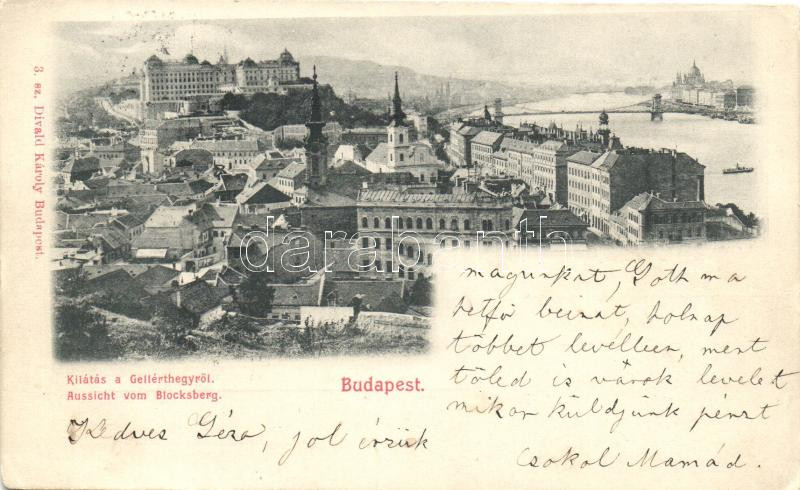 3. sz. Divald Károly Budapest.
darabanth
Kilátás a Gellérthegyről.
Aussicht vom Blocksberg.
Budapest.
Kedves Géza, jol érzük
magunkat, Goth ma
hetfő beirat, holnap
többet levelleen, mert
töled is várok levelet
mikor küldjünk pénzt
Csokol Mamád.